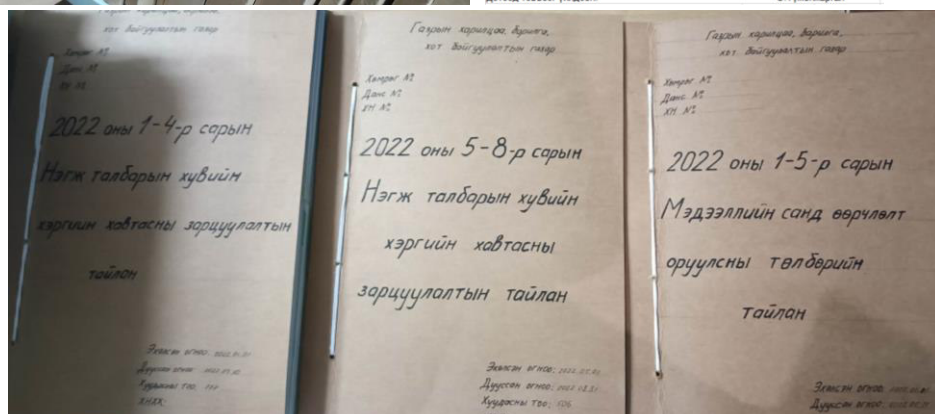 Газрын харилцаа, барилга,
хот байгуулалтын газар
Хөмрөг №
Данс №
ХН №
2022 оны 1-4-р сарын
Нэгж талбарын хувийн
хэргийн хавтасны зарцуулалтын
тайлан
Эхэлсэн огноо:
Дууссан огноо:
Хуудасны тоо:
Газрын харилцаа, барилга,
хот байгуулалтын газар
Хөмрөг №
Данс №
ХН №
2022 оны 5-8-р сарын
Нэгж талбарын хувийн
хэргийн хавтасны
зарцуулалтын тайлан
Эхэлсэн огноо:
Дууссан огноо:
Хуудасны тоо:
Газрын харилцаа, барилга,
хот байгуулалтын газар
Хөмрөг №
Данс №
ХН №
2022 оны 1-5-р сарын
Мэдээллийн санд өөрчлөлт
оруулсны төлбөрийн
тайлан
Эхэлсэн огноо:
Дууссан огноо: